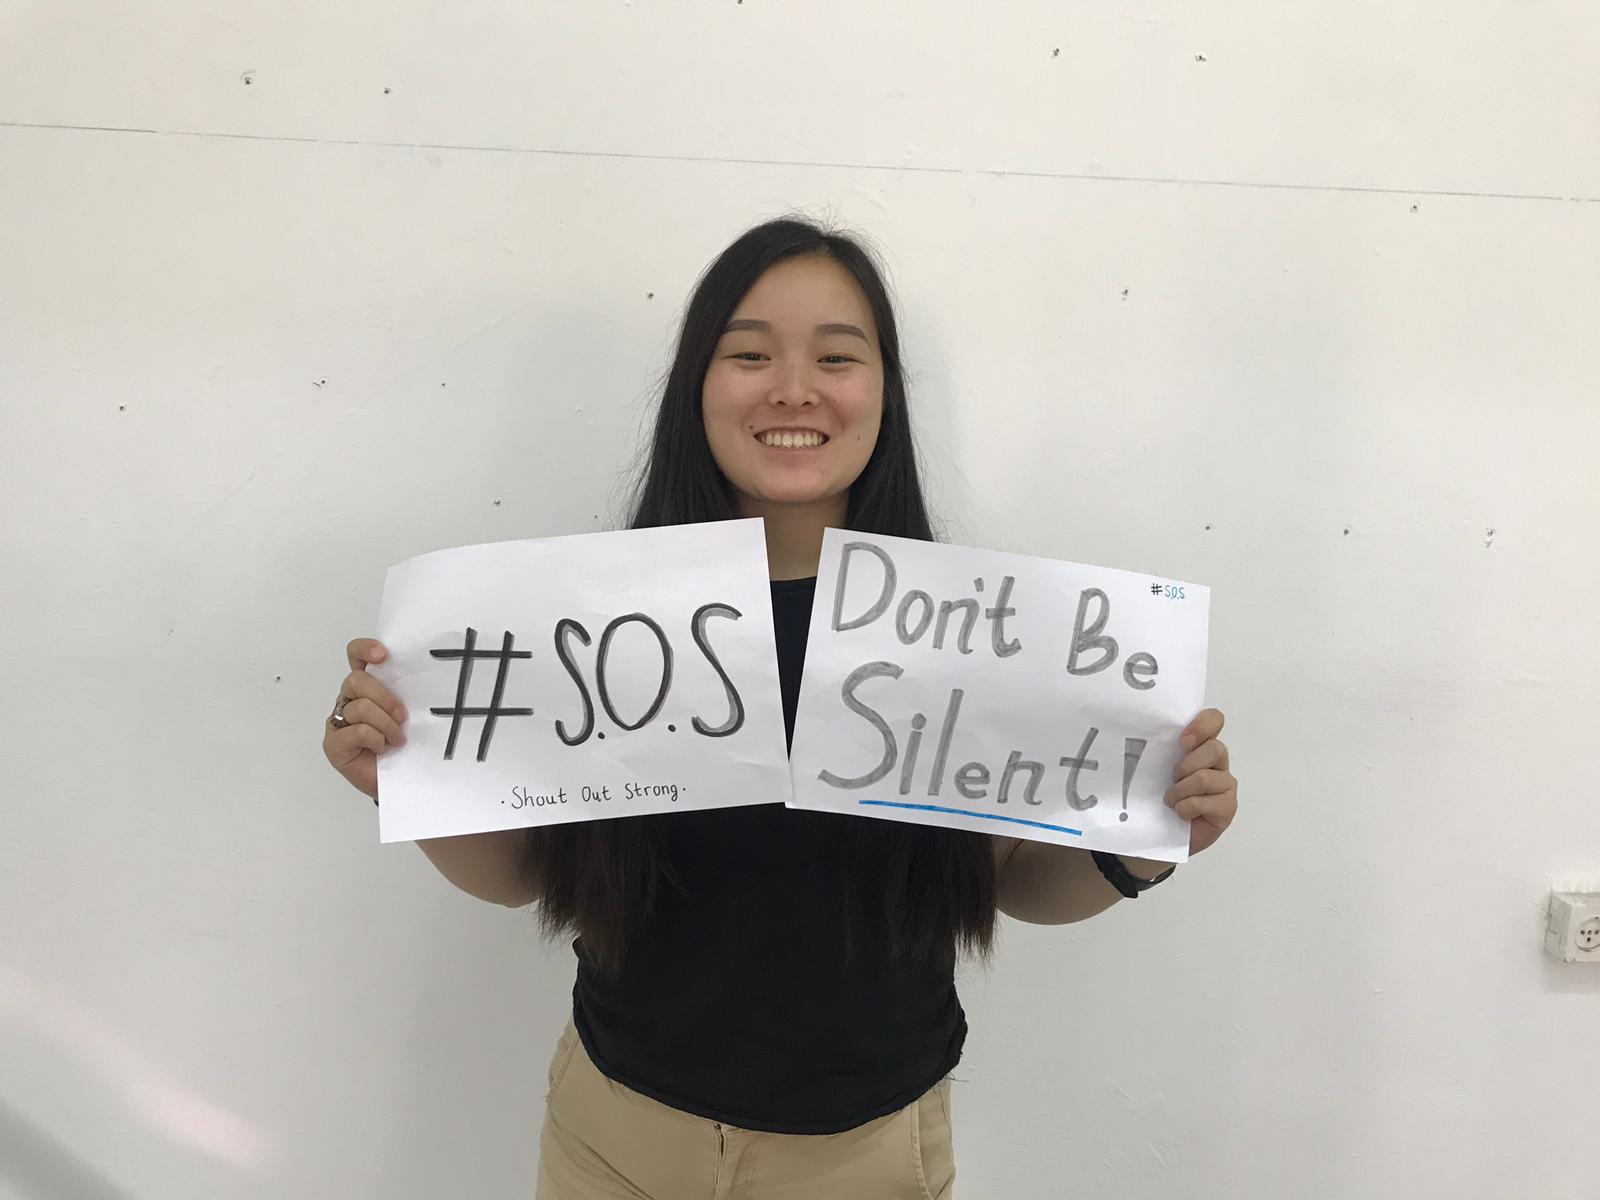 #S.O.S
·Shout Out Strong·
#S.O.S
Don't Be
Silent!